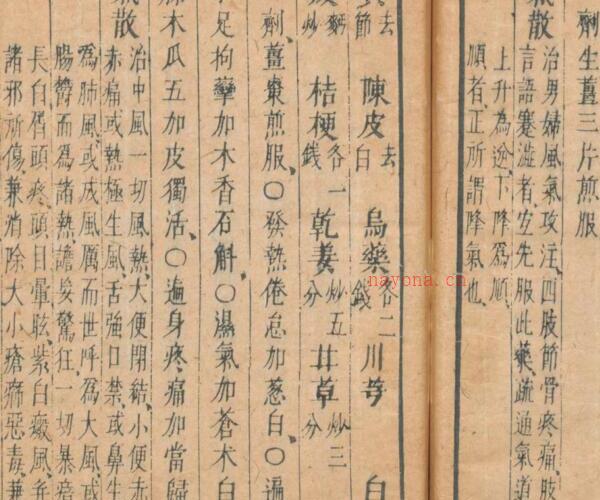 劑生薑三片煎服
氣散
治男婦風氣攻注四肢節骨疼痛肢
言語蹇澁者宜先服此藥疏通氣道
上升為逆下降為順
順者正所謂降氣也
去節 陳皮去白 烏藥各二錢 川芎 白
炒 桔梗各一錢 乾姜炒五分 甘草炒三分
劑薑棗煎服○發熱倦怠加葱白○遍
足拘攣加木香石斛○濕氣加蒼木白
木瓜五加皮獨活○遍身疼痛加當歸
散
治中風一切風熱大便閉結小便赤
赤痛或熱極生風舌強口禁或鼻生
為肺風或成風厲而世呼為大風或
腸癰而為諸熱譫妄驚狂一切暴瘖
長白屑頭疼頭目暈眩紫白癜風并
諸邪所傷兼消除大小瘡惡毒兼
nayona.cn